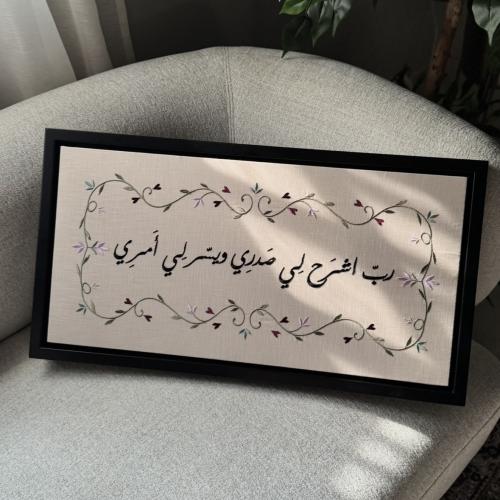 ربّ اشرَح لِي صَدرِي ويسّر لِي أَمرِي